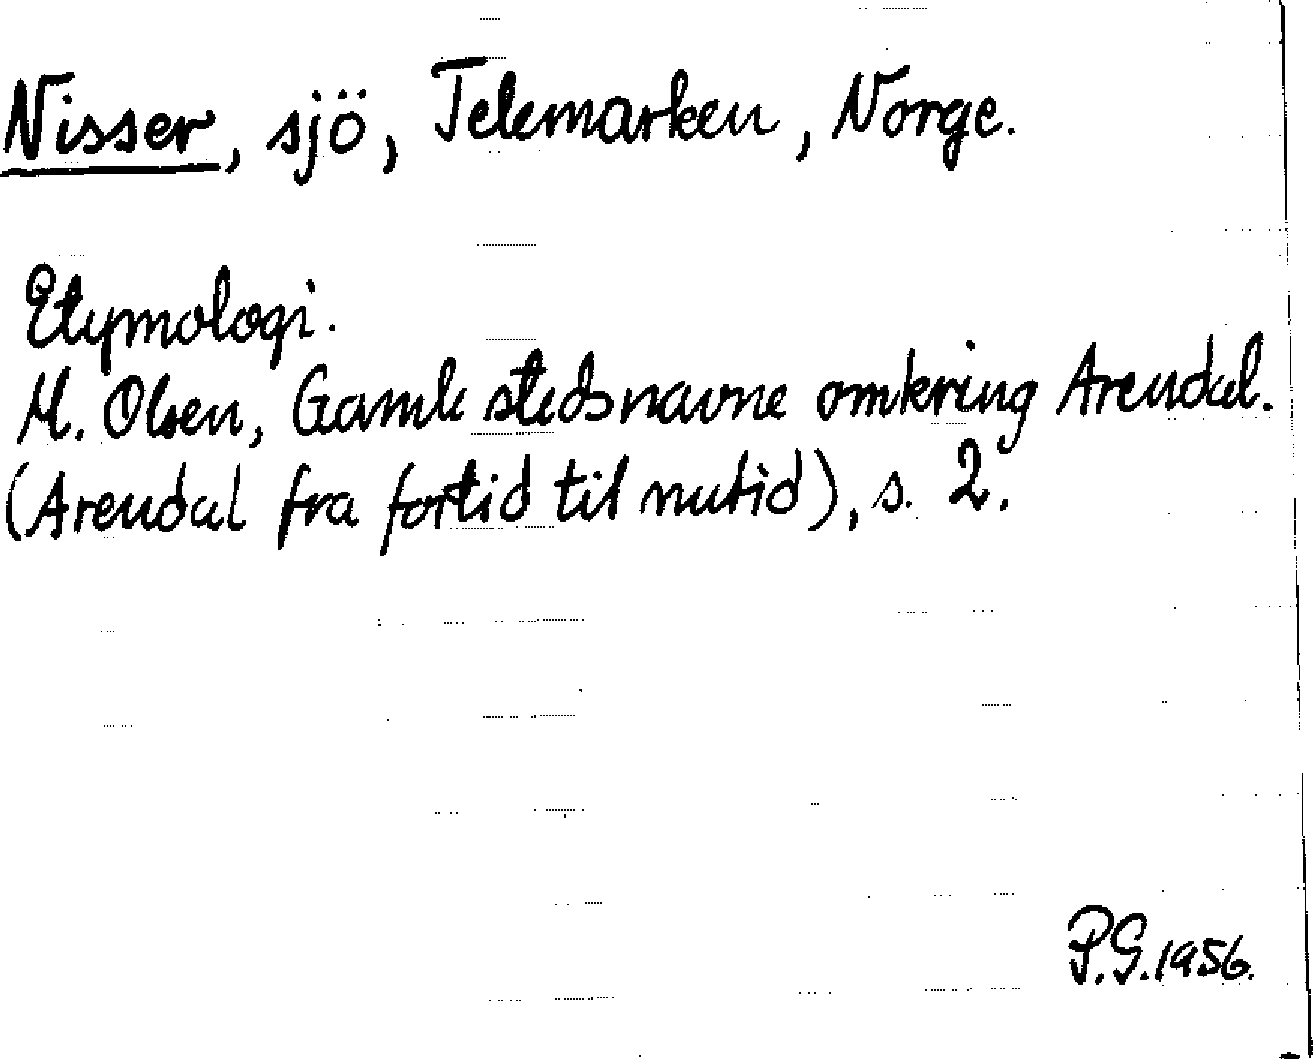 Nisser, sjö, Telemarken, Norge.
Etymologi.
M. Olsen, Gamle stedsnavne omkring Arendal.
(Arendal fra fortid til nutid), s. 2.
P.G. 1956.